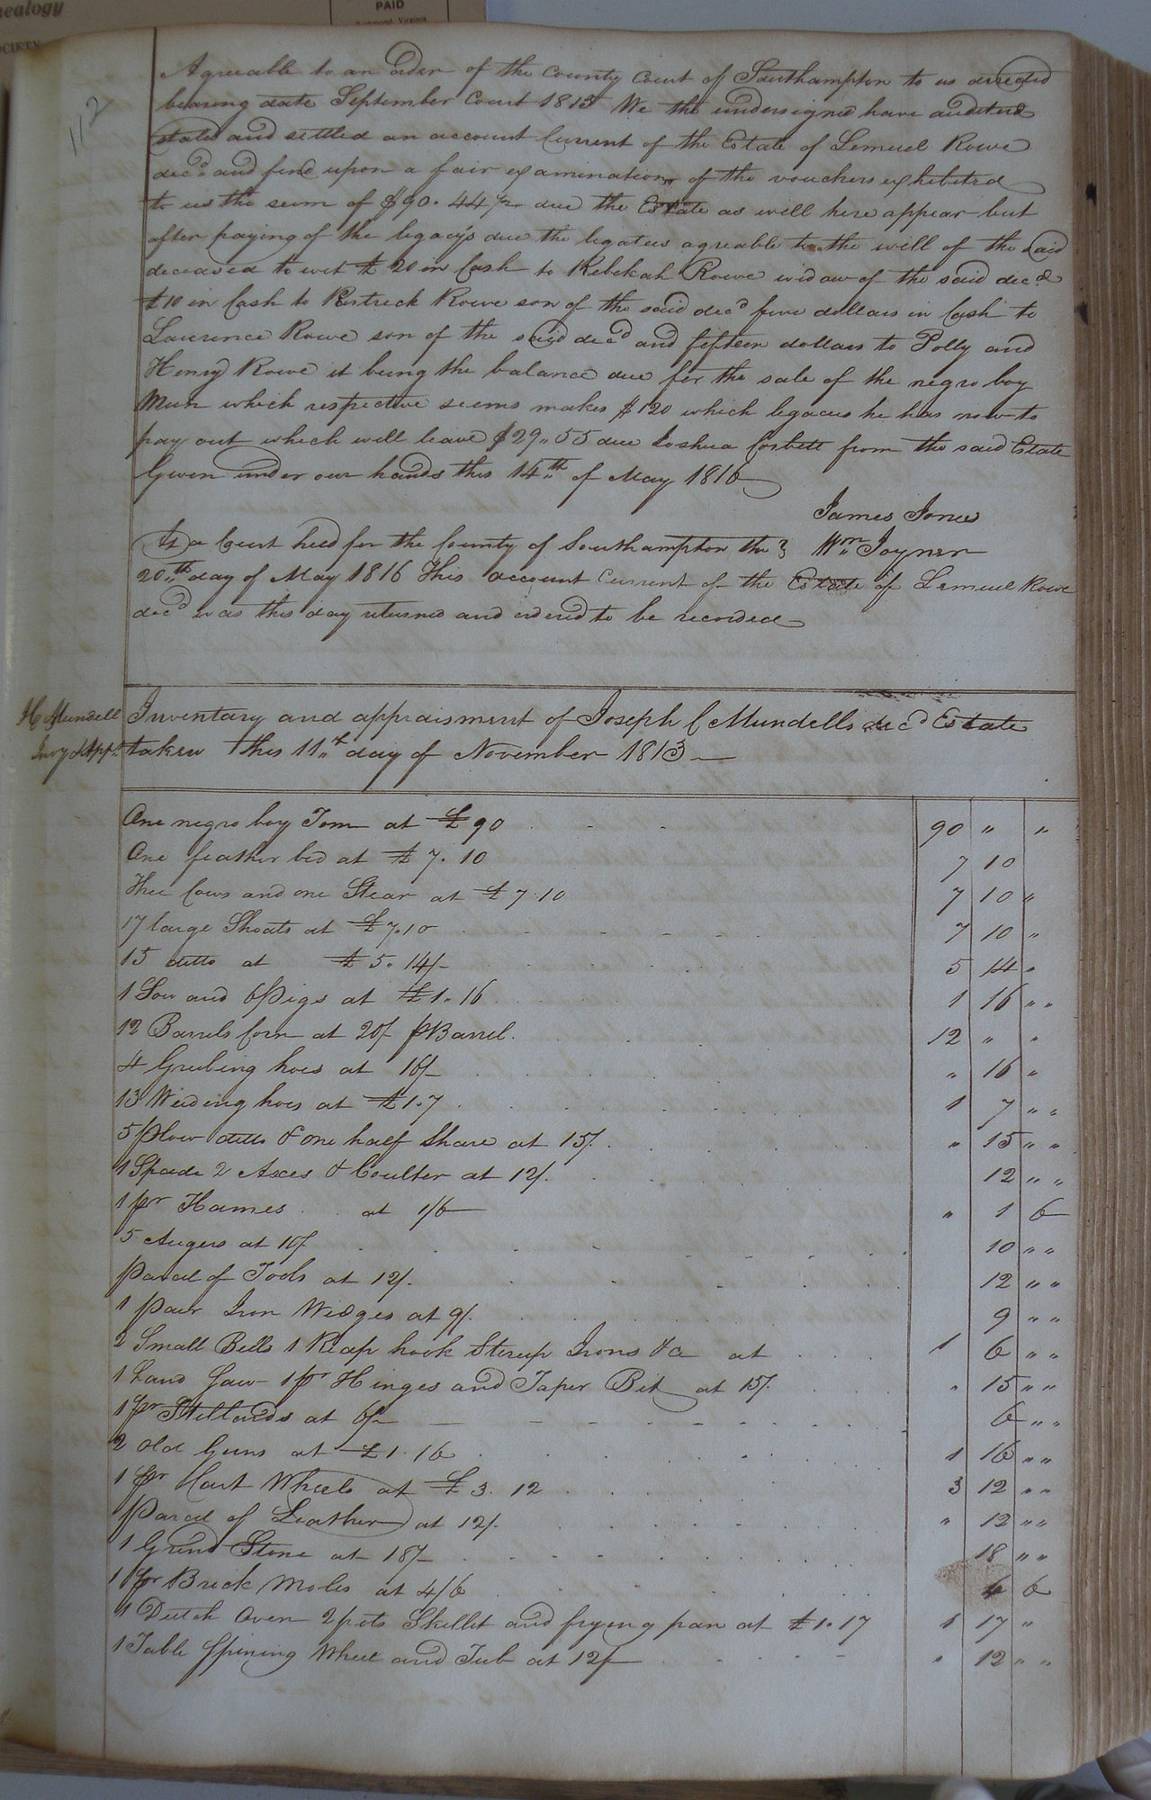 nealogy
OCIETY
PAID
112
Agreeable to an order of the County Court of Southampton to us directed
bearing date September Court 1815 We the undersigned have audited
stated and settled an account Current of the Estate of Lemuel Rowe
decd. and find upon a fair examination of the vouchers exhibited
to us the sum of $90.44 1/2 due the Estate as will here appear but
after paying of the legacys due the legatees agreable to the will of the said
deceased to wit £20 in Cash to Rebekah Rowe widow of the said decd
£10 in Cash to Pertrick Rowe son of the said decd five dollars in Cash to
Laurence Rowe son of the said decd and fifteen dollars to Polly and
Henry Rowe it being the balance due for the sale of the negro boy
Mun which respective seems makes $120 which legacies he has now to
pay out which will leave $29.55 due Joshua Corbett from the said Estate
Given under our hands this 14th of May 1816
James Jones
At a Court held for the County of Southampton the } Wm. Joyner
20th day of May 1816 This account Current of the Estate of Lemuel Rowe
decd was this day returned and orderd to be recorded
Mundell Inventary and appraisment of Joseph C Mundells decd Estate
Invy & Appt. taken this 11th day of November 1813
One negro boy Tom at £90 90 " "
One feather bed at £7.10 7 10
Thee Cows and one Stear at £7.10 7 10 "
17 large Shoats at £7.10 7 10 "
15 ditto at £5.14/- 5 14 "
1 Sow and 6 Pigs at £1.16 1 16 " "
12 Barrels Corn at 20/ p Barrel. 12 " "
4 Grubing hoes at 16/- " 16 "
13 Weeding hoes at £1.7 1 7 " "
5 plow ditto & one half Share at 15/. " 15 " "
1 Spade 2 Axes & Coulter at 12/. 12 " "
1 pr Hames at 1/6 " 1 6
5 Augers at 10/ 10 " "
Parcel of Tools at 12/. 12 " "
1 pair Iron Wedges at 9/. 9 " "
2 Small Bells 1 Reap hook Stirup Irons &c at 1 6 " "
1 hand Saw 1 pr Hinges and Taper Bit at 15/. " 15 " "
1 pr Stillards at 6/- 6 " "
2 old Guns at £1.16 1 16 " "
1 pr Cart Wheels at £3.12 3 12 " "
Parcel of Leather at 12/. " 12 " "
1 Grind Stone at 18/- 18 " "
1 pr Brick Moles at 4/6 4 6
1 Dutch Oven 2 pots Skillet and frying pan at £1.17 1 17 "
1 Table Spining Wheel and Tub at 12/ " 12 " "